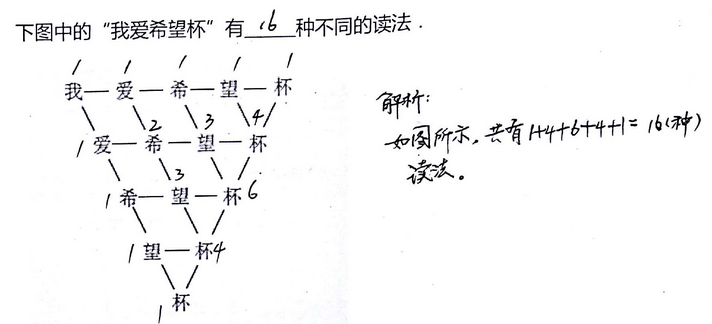 下图中的“我爱希望杯”有 16 种不同的读法.
1 1 1 1 1
我—爱—希—望—杯
2 3 4
1爱—希—望—杯
3
1希—望—杯6
1望—杯4
1杯
解析:
如图所示,共有1+4+6+4+1=16(种)
读法。